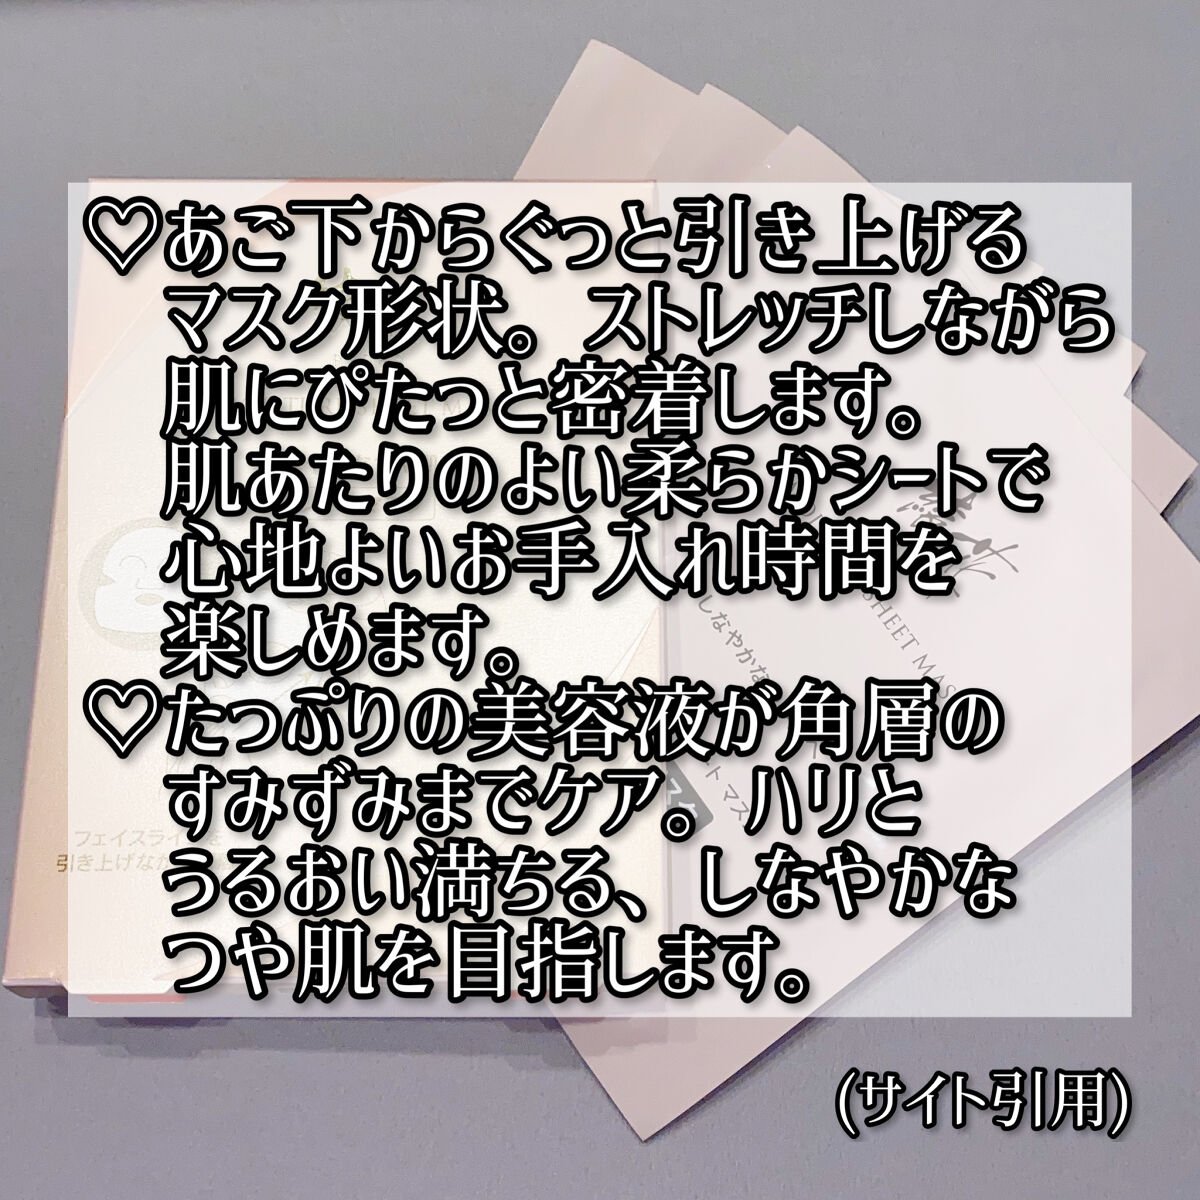 ♡あご下からぐっと引き上げる
マスク形状。ストレッチしながら
肌にぴたっと密着します。
肌あたりのよい柔らかシートで
心地よいお手入れ時間を
楽しめます。
♡たっぷりの美容液が角層の
すみずみまでケア。ハリと
うるおい満ちる、しなやかな
つや肌を目指します。
(サイト引用)
フェイスライ
引き上げなが
SHEET MAS
しなやかな
ト マス
スク